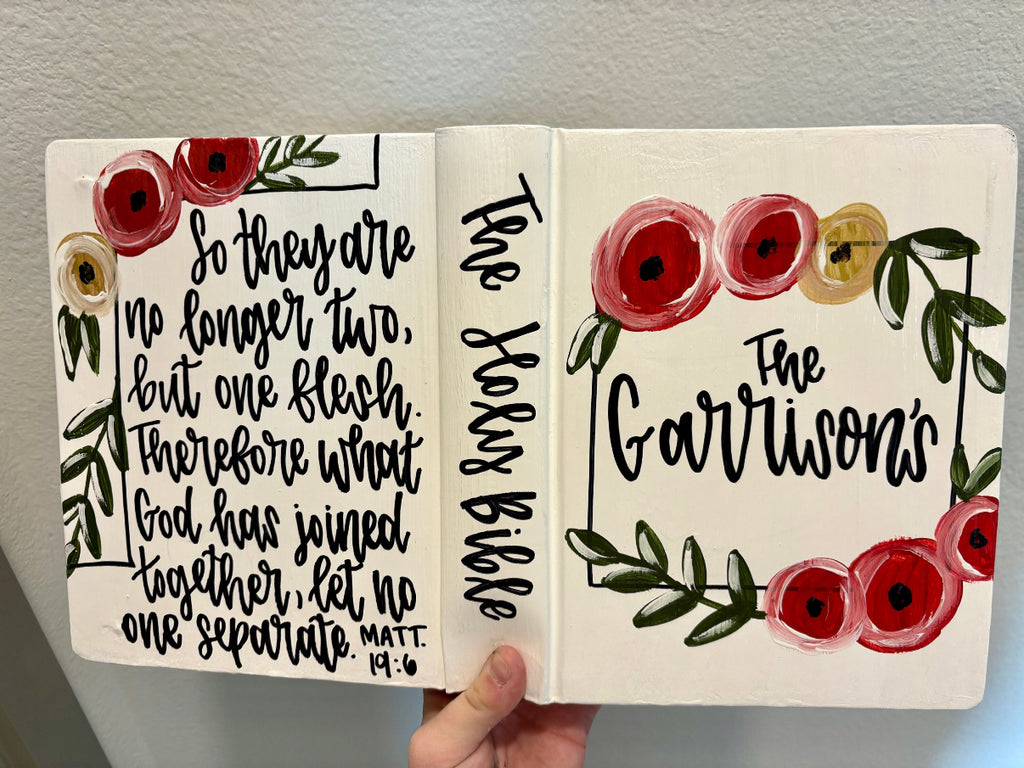 So they are
no longer two,
but one flesh.
Therefore what
God has joined
together, let no
one separate. MATT.
19:6
The Holy Bible
The
Garrison's